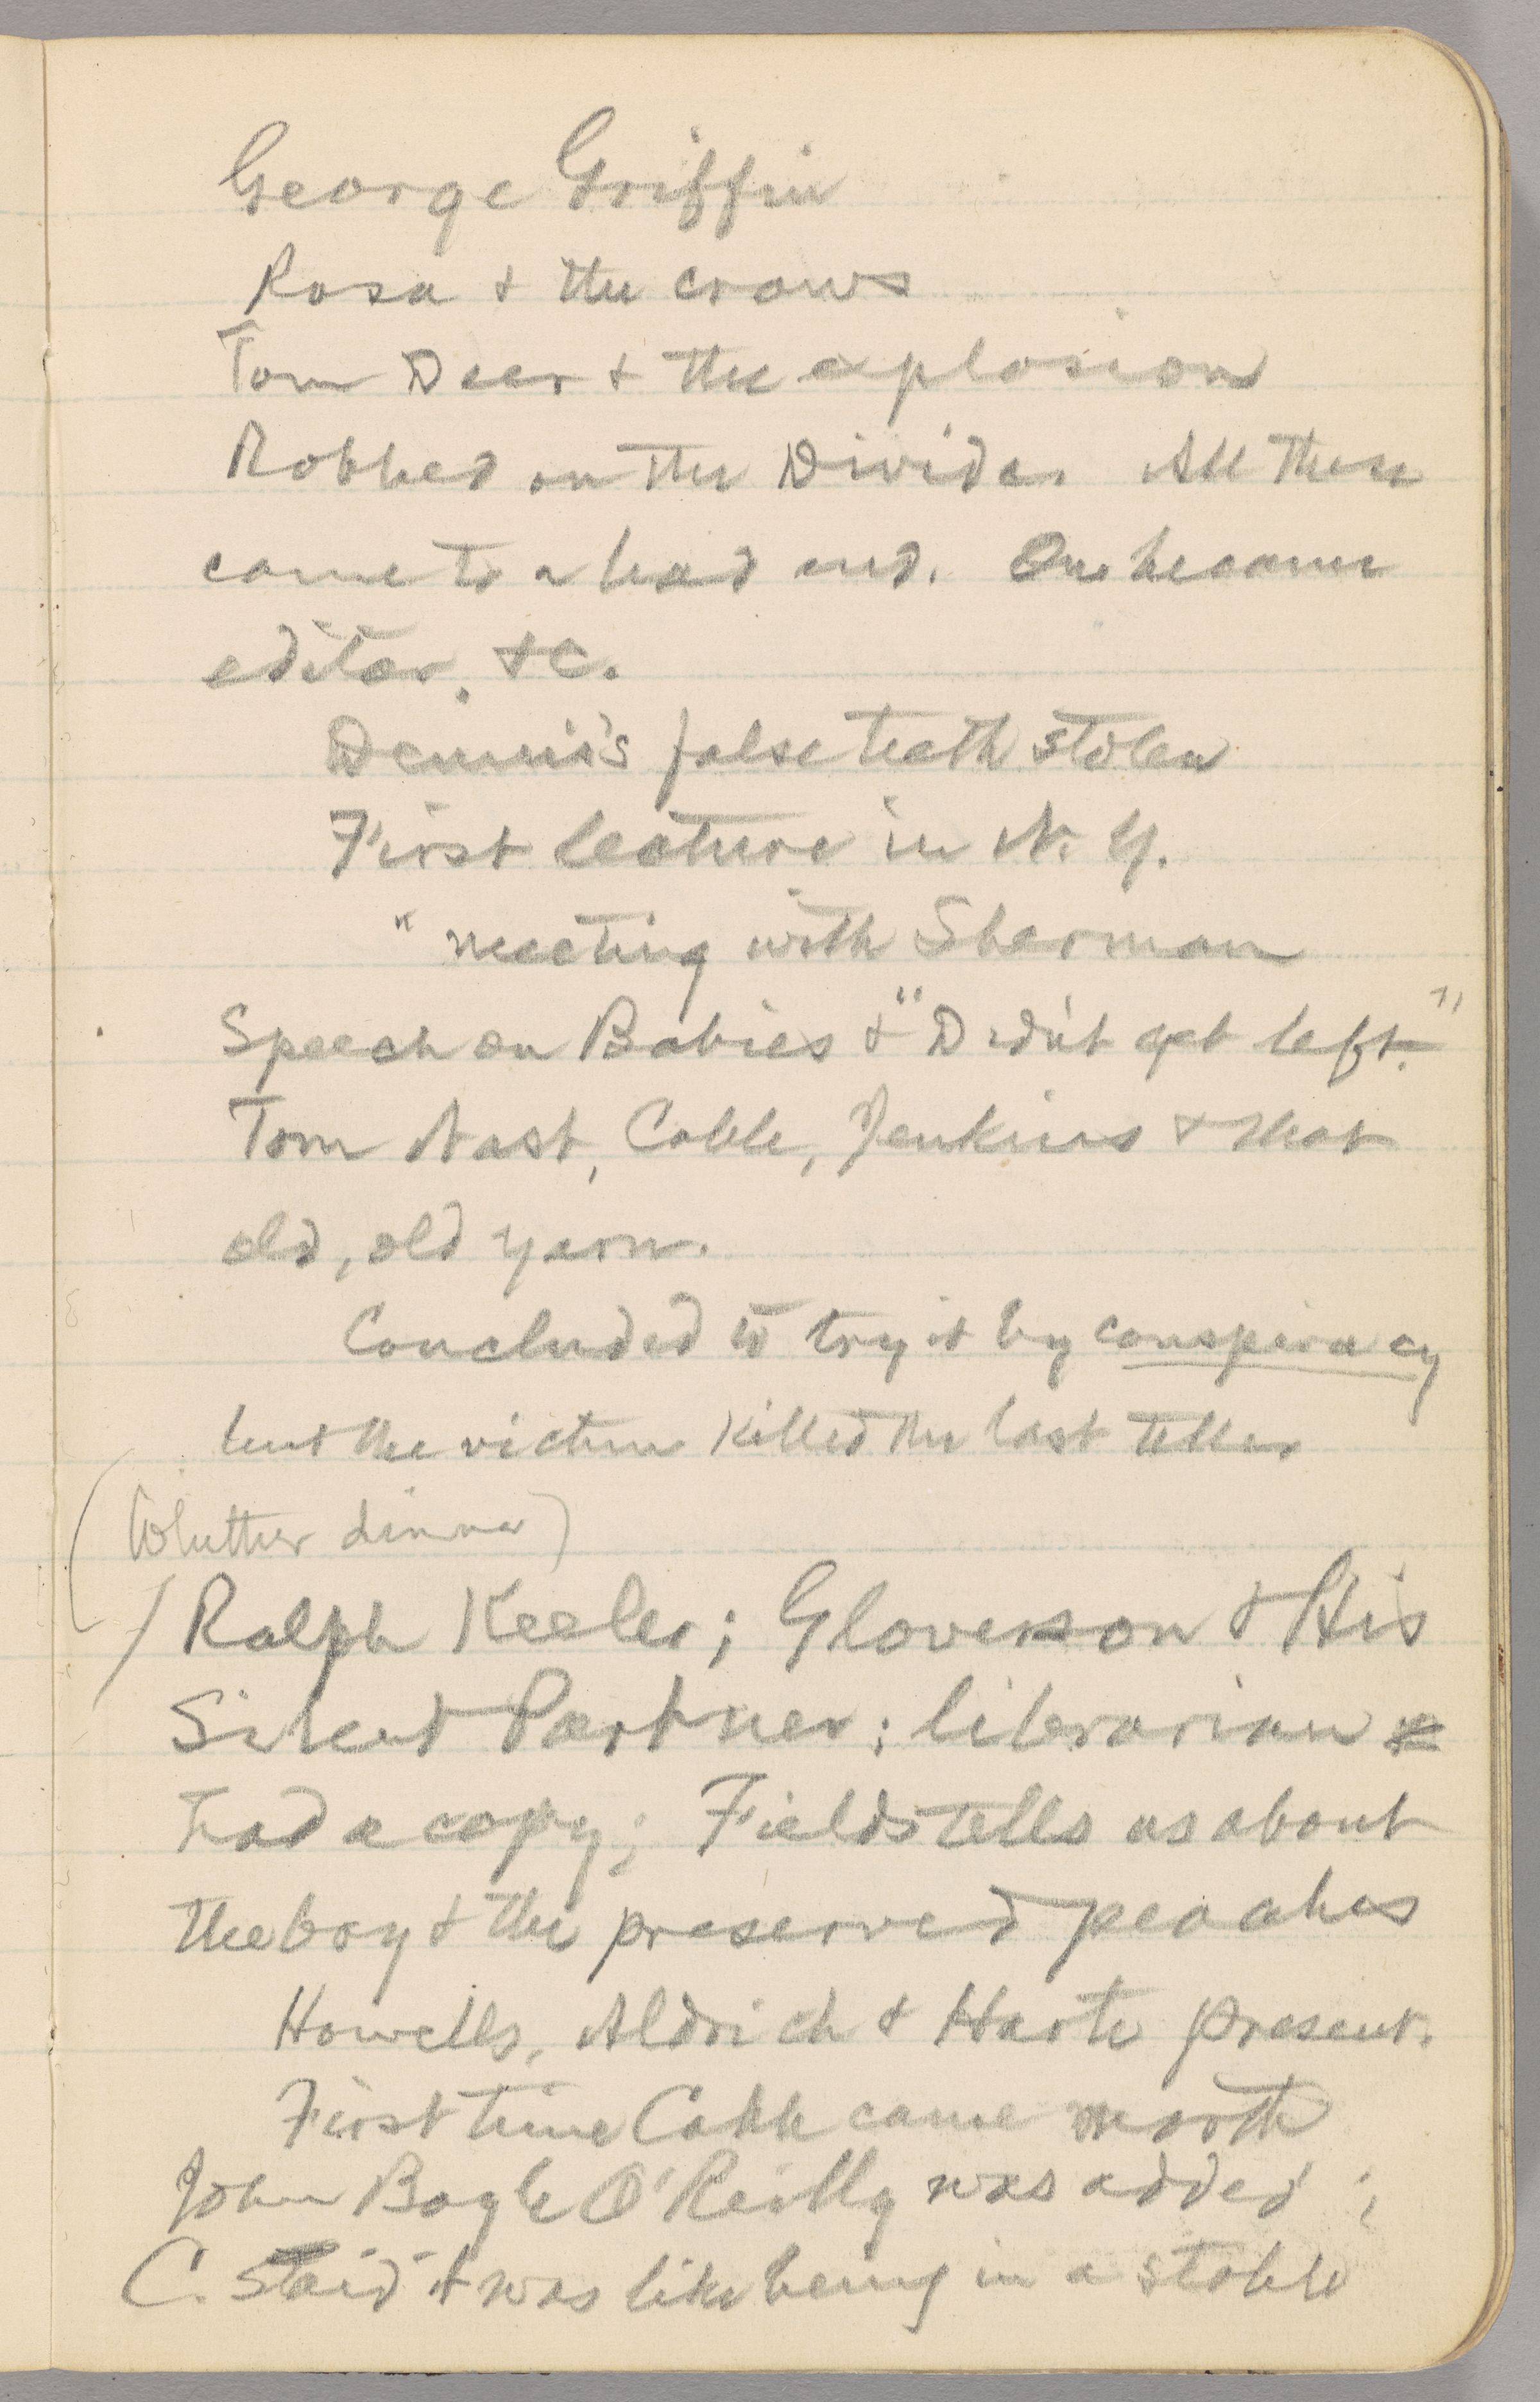 George Griffin
Rosa & the crows
Tom Deer & the explosion
Robbed on the Divide. All these
came to a bad end. One became
editor, &c.
Dennis's false teeth stolen
First lecture in N. Y.
" meeting with Sherman
Speech on Babies & "Didn't get left."
Tom Nast, Cable, Jenkins & that
old, old yarn.
Concluded to try it by conspiracy
but the victim killed the last teller
(Whittier dinner)
Ralph Keeler; Gloverson & His
Silent Partner; librarian
had a copy; Fields tells us about
the boy & the preserved peaches
Howells, Aldrich & Harte present.
First time Cable came north
John Boyle O'Reilly was added;
C. said it was like being in a stable